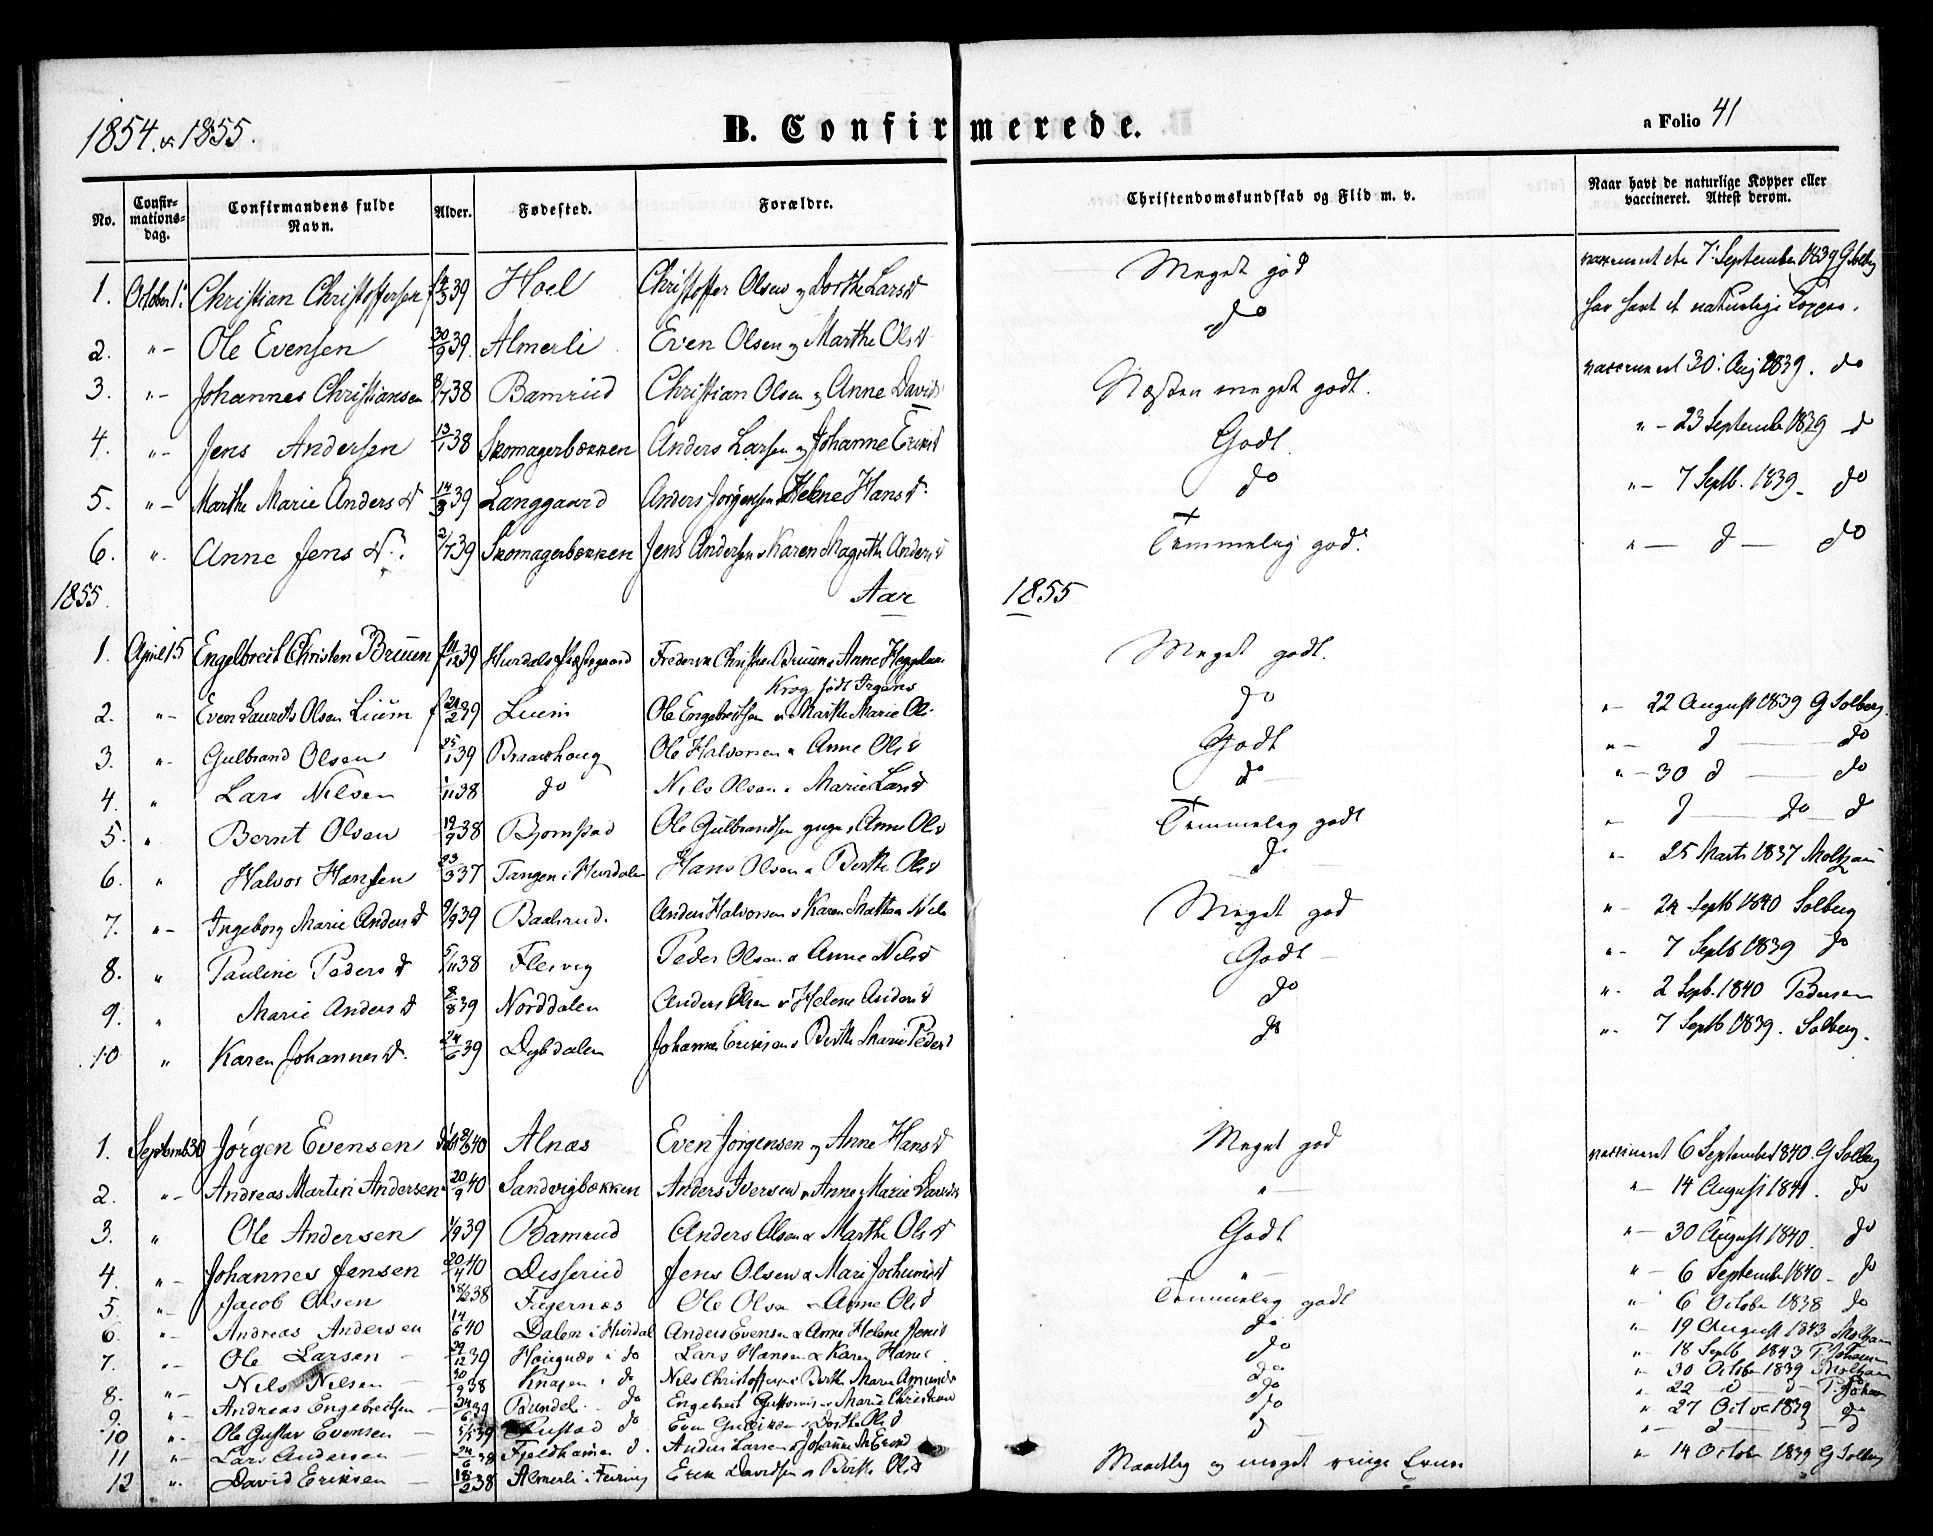 1854 & 1855.
B. Confirmerede.
a Folio 41
No. Confirmationsdag. Confirmandens fulde Navn. Alder. Fødested. Forældre. Christendomskundskab og Flid m. v. Naar havt de naturlige Kopper eller vaccineret. Attest derom.
1. October 1. Christian Christoffersen 39 Hoel Christoffer Olsen og Dorthe Larsd Meget god 7 September 1839 G Solberg
2. "- Ole Evensen 30/9 39 Almerli Even Olsen og Marthe Olsd do har havt d naturlige Kopper.
3. "- Johannes Christiansen 38 Bamrud Christian Olsen og Anne Davids Næsten meget godt. 30 Aug 1839. do
4. "- Jens Andersen 13/1 38 Skomagerbækken Anders Larsen og Johanne Eriksd Godt. "- 23 September 1839 d
5. "- Marthe Marie Andersd 14/3 39 Langgaard Anders Jørgensen Helene Hansd do "- 7 Septb. 1839 - do
6. ". Anne Jensd. 2/7 39 Skomagerbækken Jens Andersen & Karen Magrethe Andersd Temmelig god. "- d - do
1855. Aar 1855
1. April 15 Engelbret Christen Bruun 39 Hurdals Præstegaard Frederik Christian Bruun & Anne Meget godt.
Krog født Irgens
2. "- Even Laurits Olsen Lium 39 Lium Ole Engebretsen & Marthe Marie Ols. do "- 22 August 1839 G Solberg.
3. "- Gulbrand Olsen 25/1 39 Braathoug Ole Halvorsen & Anne Olsd Godt "- d - do
4. " Lars Nilsen 38 do Nils Olsen & Marie Larsd do "- 30 d - do
5. " Bernt Olsen 19/9 38 Bjørnstad Ole Gulbrandsen & Anne Olsd Temmelig godt " d - do d
6. " Halvor Hansen 23/3 37 Tangen i Hurdalen Hans Olsen & Berthe Olsd do "- 25 Marts 1837 Moltzau
7. "- Ingeborg Marie Andersd 39 Baalsrud. Anders Halvorsen & Karen Mathea Nils Meget god "- 24 Septb 1840 Solberg
8. " Pauline Pedersd 5/11 38 Flesvig Peder Olsen & Anne Nilsd Godt - "- 7 Septb 1839 do
9. " Marie Andersd 8/8 39 Norddalen Anders Olsen & Helene Andersd do ". 2 Sepb. 1840 Pedersen
10 " Karen Johannesd. 24/6 39 Dybdalen Johannes Eriksen & Berthe Marie Pedersd do ". 7 Septb 1839. Solberg.
1. Septemb 30 Jørgen Evensen 40 Alnæs Even Jørgensen og Anne Hansd Meget god vaccineret 6 September 1840. G Solberg
2. "- Andreas Martin Andersen 20/9 40 Sandvigbækken Anders Iversen & Anne Marie Davids "- "- 14 August 1841. do
3. " Ole Andersen 1/9 39 Bamrud Anders Olsen & Marthe Olsd Godt "- 30 August 1840. do
4. "- Johannes Jensen 20/4 40 Disserud Jens Olsen & Mari Jochumsd "- "- 6 September 1840 - do
5. "- Jacob Olsen 38 Fugernæs Ole Olsen & Anne Olsd Temmelig godt "- 6 October 1838 do
6. "- Andreas Andersen 14/6 40 Dalen i Hurdal Anders Evensen & Anne Helene Jensd do "- 19 August 1843 Moltzau
7. "- Ole Larsen - 29/12 39 Høignæs i do Lars Hansen & Karen Hansd do "- 18 Septb 1843 P. Johansen
8. "- Nils Nilsen - 38 Knagen i do Nils Christoffersen & Berthe Marie Amundsd do "- 30 October 1839 Moltzau
9. "- Andreas Engebretsen - 39 do Engebret & Marie Christensd do " 22 d - d P. Johan
10 ". Ole Gustav Evensen - 5/5 39 Gustad do Even Gulliksen & Dorthe Olsd do " 27 Octbr 1839 do
11 "- Lars Andersen - 24/6 38 Fjeldhamar d. Anders Larsen & Johanne M Eriksd d "- d - d
12 ". David Eriksen - 18/2 38 Almerli i Feiring Erik Davidsen & Berthe Olsd Maadelig og meget ringe Evner "- 14 October 1839 G Solberg